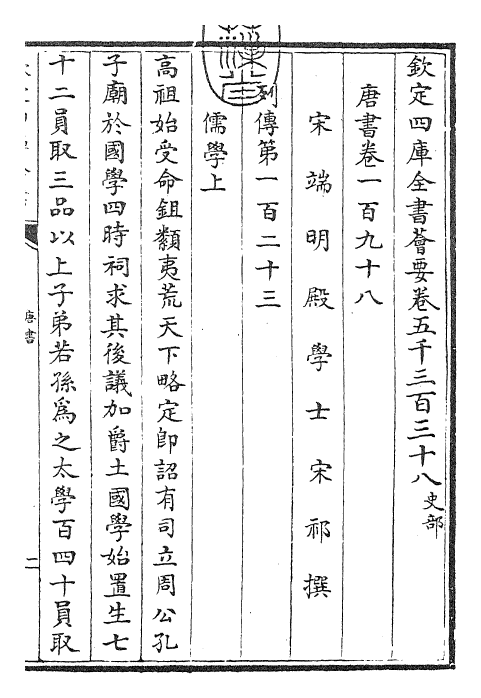 欽定四庫全書薈要卷五千三百三十八史部
唐書卷一百九十八
宋端明殿學士宋祁撰
列傳第一百二十三
儒學上
高祖始受命鉏纇夷荒天下略定即詔有司立周公孔
子廟於國學四時祠求其後議加爵土國學始置生七
十二員取三品以上子弟若孫為之太學百四十員取
唐書